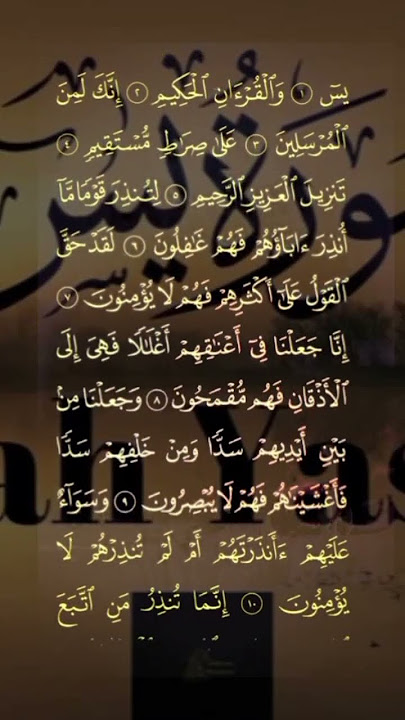 يسٓ ١ وَٱلْقُرْءَانِ ٱلْحَكِيمِ ٢ إِنَّكَ لَمِنَ
ٱلْمُرْسَلِينَ ٣ عَلَىٰ صِرَٰطٍ مُّسْتَقِيمٍ ٤
تَنزِيلَ ٱلْعَزِيزِ ٱلرَّحِيمِ ٥ لِتُنذِرَ قَوْمًا مَّآ
أُنذِرَ ءَابَآؤُهُمْ فَهُمْ غَٰفِلُونَ ٦ لَقَدْ حَقَّ
ٱلْقَوْلُ عَلَىٰٓ أَكْثَرِهِمْ فَهُمْ لَا يُؤْمِنُونَ ٧
إِنَّا جَعَلْنَا فِىٓ أَعْنَٰقِهِمْ أَغْلَٰلًا فَهِىَ إِلَى
ٱلْأَذْقَانِ فَهُم مُّقْمَحُونَ ٨ وَجَعَلْنَا مِنۢ
بَيْنِ أَيْدِيهِمْ سَدًّا وَمِنْ خَلْفِهِمْ سَدًّا
فَأَغْشَيْنَٰهُمْ فَهُمْ لَا يُبْصِرُونَ ٩ وَسَوَآءٌ
عَلَيْهِمْ ءَأَنذَرْتَهُمْ أَمْ لَمْ تُنذِرْهُمْ لَا
يُؤْمِنُونَ ١٠ إِنَّمَا تُنذِرُ مَنِ ٱتَّبَعَ
سورة يس
ah Yas